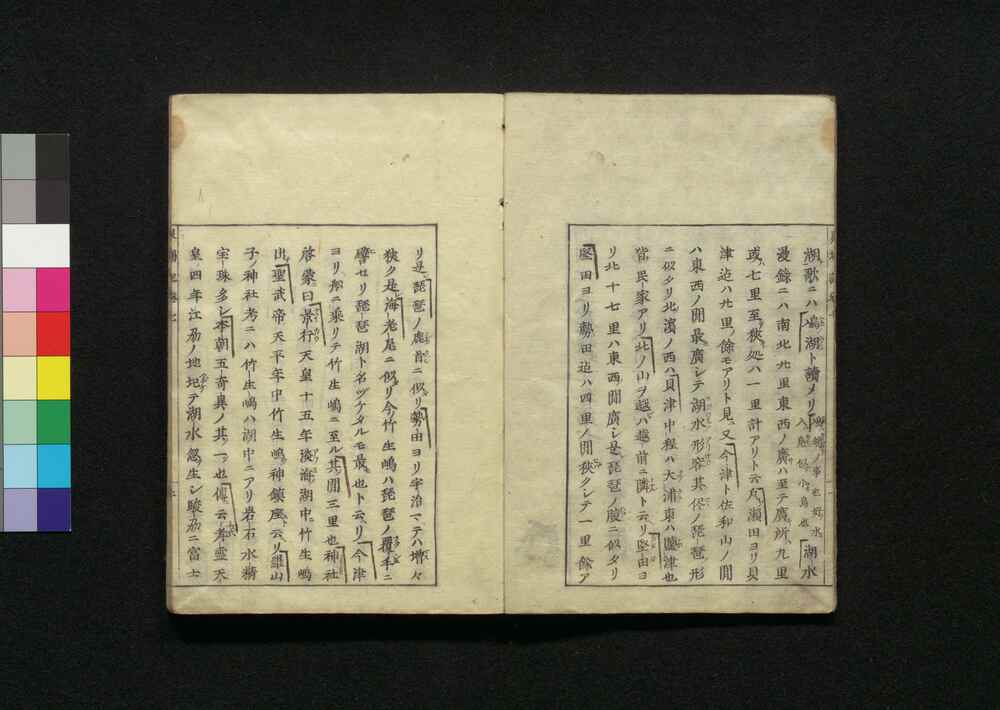 湖歌ニハ鳰湖ト讀メリ 湖水
漫餘ニハ南北九里東西ノ廣ハ至テ廣所九里
或七里至狹処ハ一里計アリト云 瀬田ヨリ貝
津迄ハ九里ノ餘モアリト見又今津ト佐和山ノ間
ハ東西ノ間最廣シテ湖水ノ形容其侭ノ琵琶形
ニ似タリ北濱ノ西ハ貝津中程ハ大浦東ハ塩津也
皆民家アリ北ノ山ヲ越バ越前ニ隣ト云リ堅田ヨ
リ北十七里ハ東西間廣シ是琵琶ノ腹ニ似タリ
堅田ヨリ勢田迄ハ四里ノ間狹クシテ一里餘ア
リ是琵琶ノ鹿首ニ似リ勢田ヨリ宇治マテハ増々
狹ク是海老尾ニ似リ今竹生嶋ハ琵琶ノ覆手ニ
譬セリ琵琶湖ト名ヅケタルモ最也ト云リ今津
ヨリ舟ニ乘リテ竹生嶋ニ至ル其間三里也神社
啓蒙曰景行天皇十五年淡海湖中竹生嶋
出聖武帝天平年中竹生嶋神鎮座云リ羅山
子ノ神社考ニハ竹生嶋ハ湖中ニアリ岩石水精
宝珠多シ本朝五奇異ノ其一也傳云孝靈天
皇四年江刕ノ地坼テ湖水忽生シ駿刕ニ富士